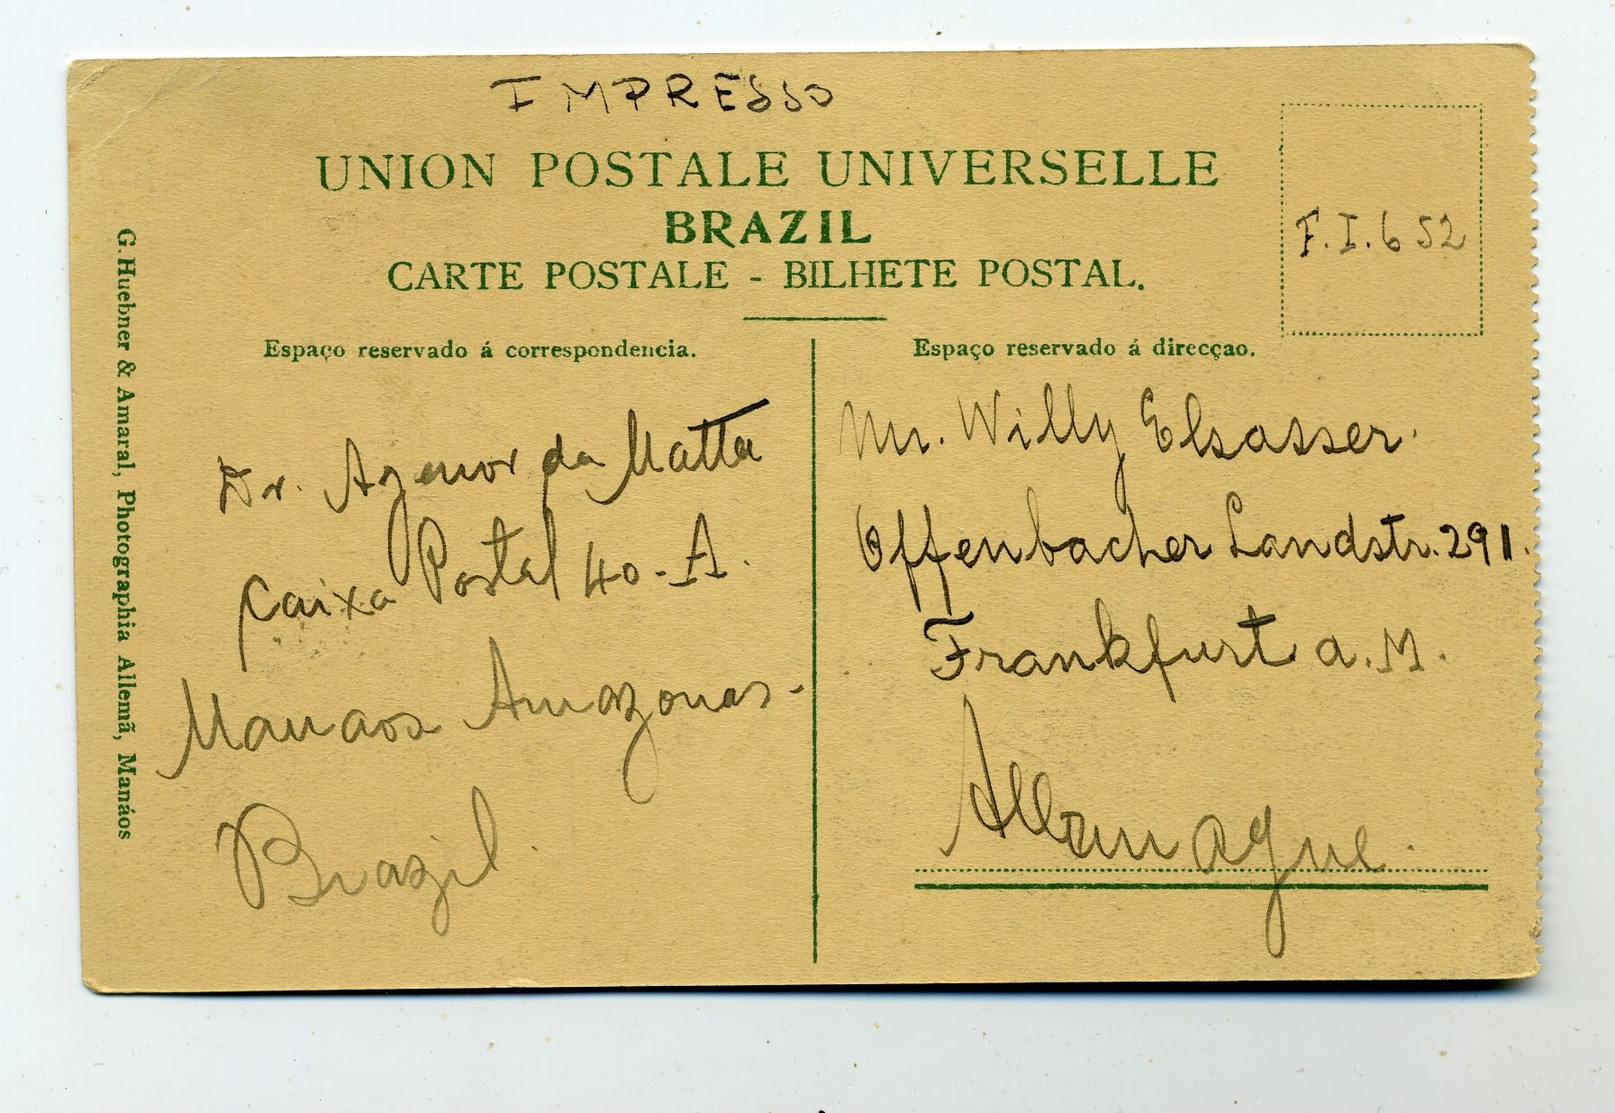 IMPRESSO
UNION POSTALE UNIVERSELLE
BRAZIL
CARTE POSTALE - BILHETE POSTAL.
F.I.652
Espaço reservado á correspondencia.
Dr. Agenor da Matta
Caixa Postal 40-A.
Manaos Amazonas-
Brazil.
Espaço reservado á direcçao.
Mr. Willy Elsasser.
Offenbacher Landstr. 291.
Frankfurt a. M.
Allemagne.
G. Huebner & Amaral, Photographia Allemã, Manáos